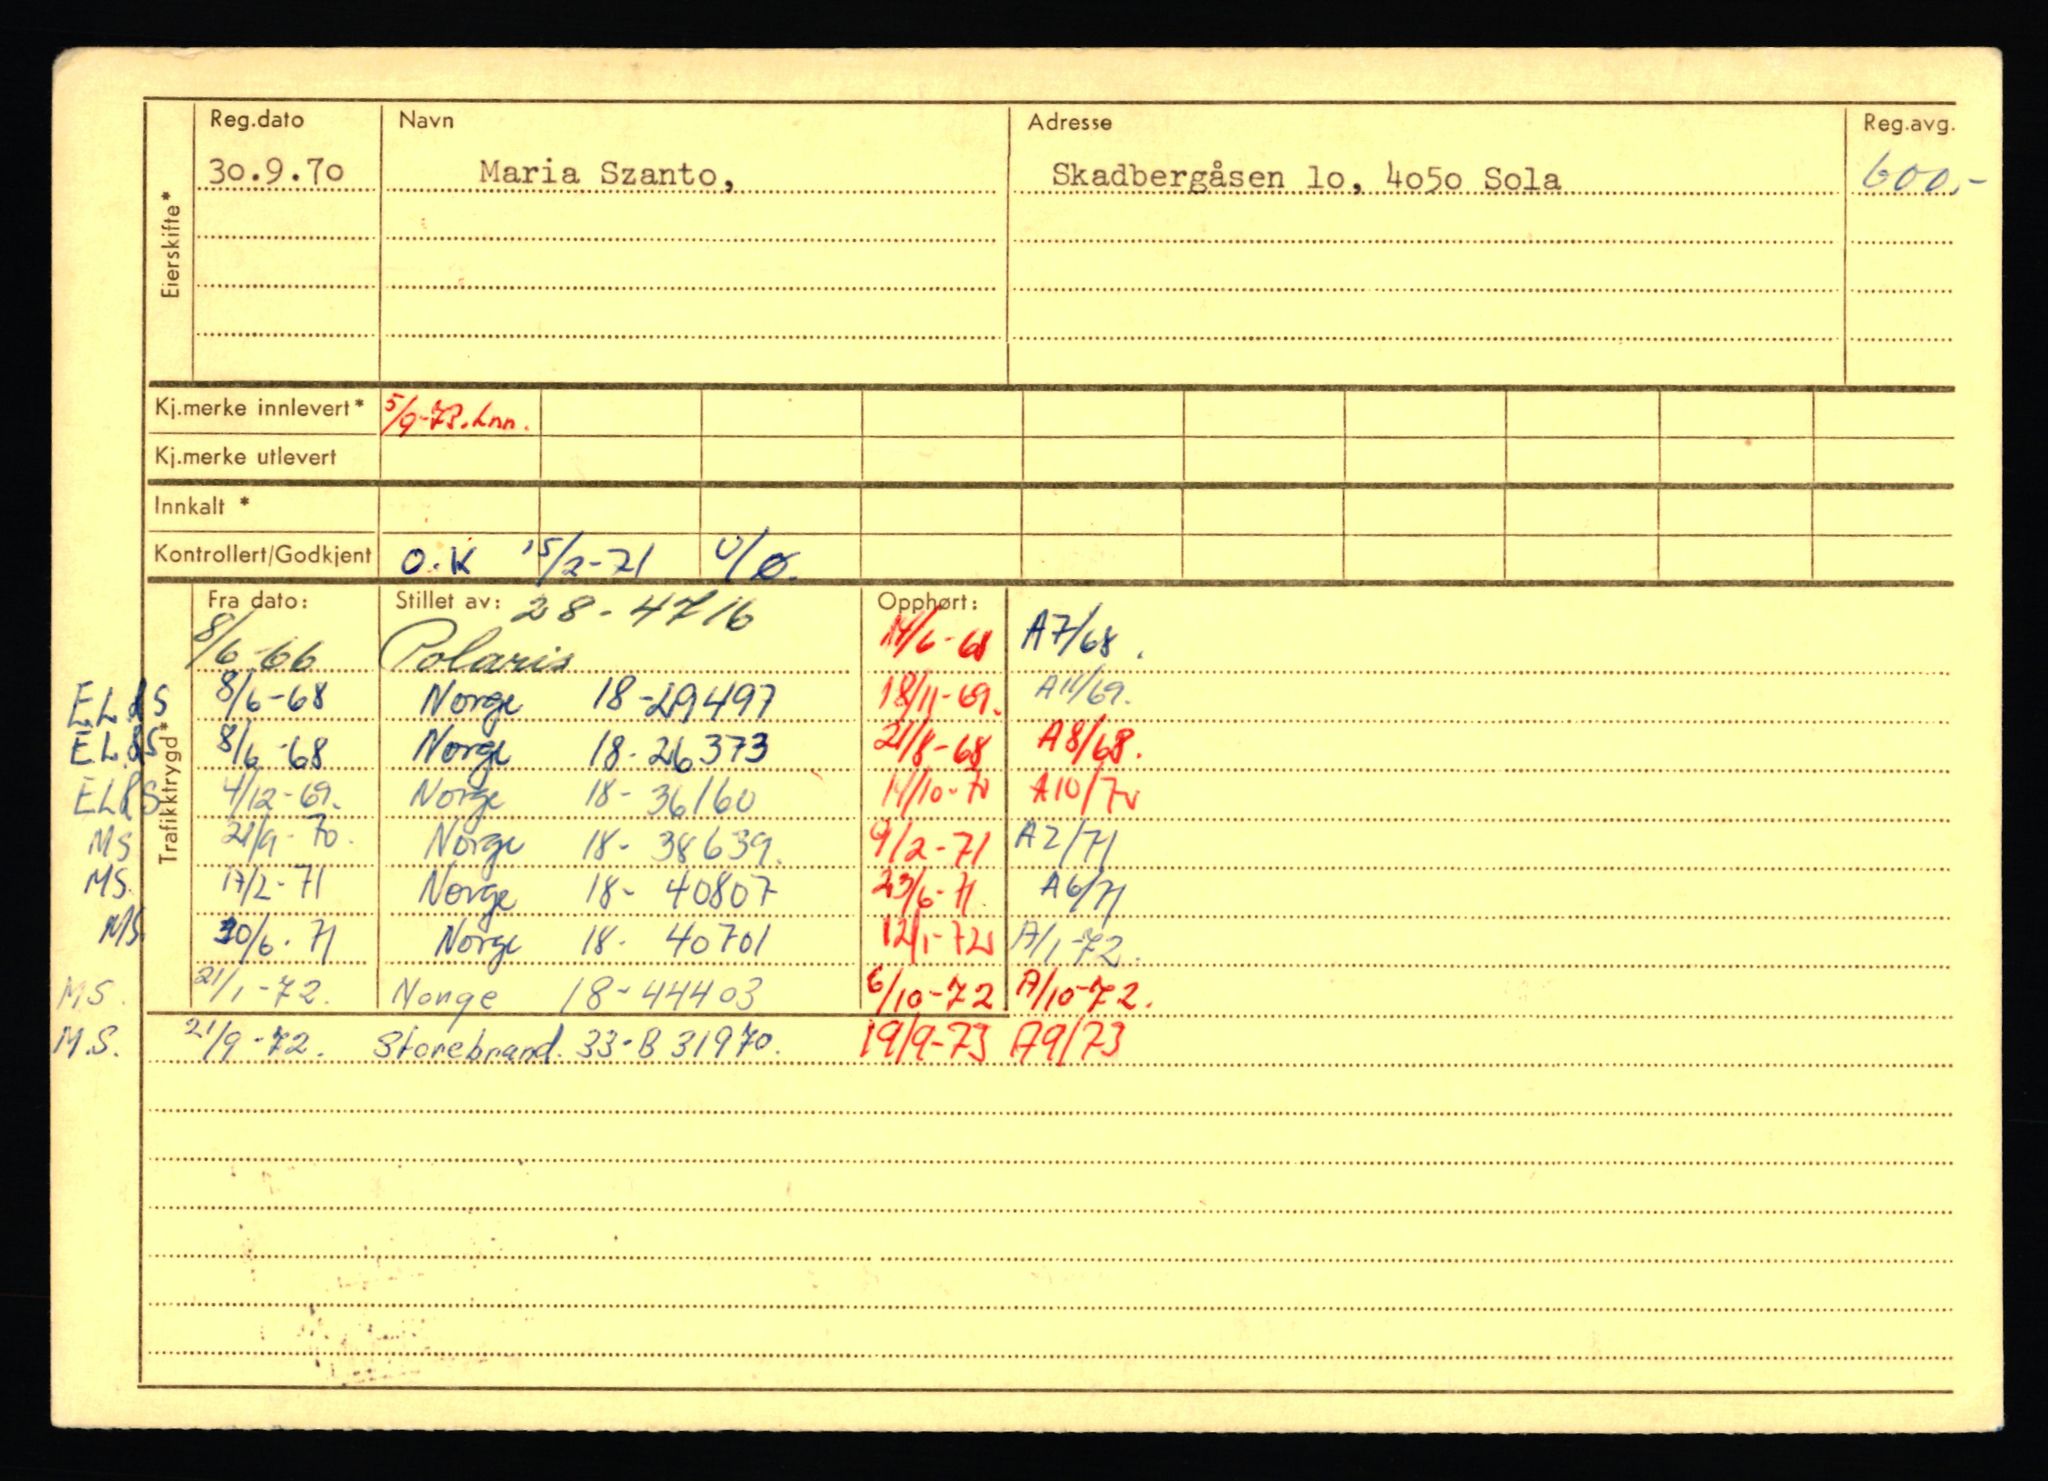 Reg.dato Navn Adresse Reg.avg.
30.9.70 Maria Szanto, Skadbergåsen 1o, 4o5o Sola 600,-
Eierskifte*
Kj.merke innlevert* 5/9-73. Inn.
Kj.merke utlevert
Innkalt *
Kontrollert/Godkjent O.K 15/2-71 U/Ø.
Trafikktrygd*
Fra dato: Stillet av: 28-4716 Opphørt:
8/6-66 Polaris 14/6-68 A7/68.
EL&S 8/6-68 Norge 18-29497 18/11-69. A11/69.
EL&S 8/6-68 Norge 18-26373 21/8-68 A8/68.
EL&S 4/12-69. Norge 18-36160 14/10-70 A10/70
MS 21/9-70. Norge 18-38639. 9/2-71 A2/71
MS. 17/2-71 Norge 18-40807 23/6-71. A6/71
MS 30/6.71 Norge 18-40701 12/1-72 A/1-72.
MS. 21/1-72. Norge 18-44403 6/10-72 A/10-72.
M.S. 21/9-72. Storebrand. 33-B 31970. 19/9-73 A9/73